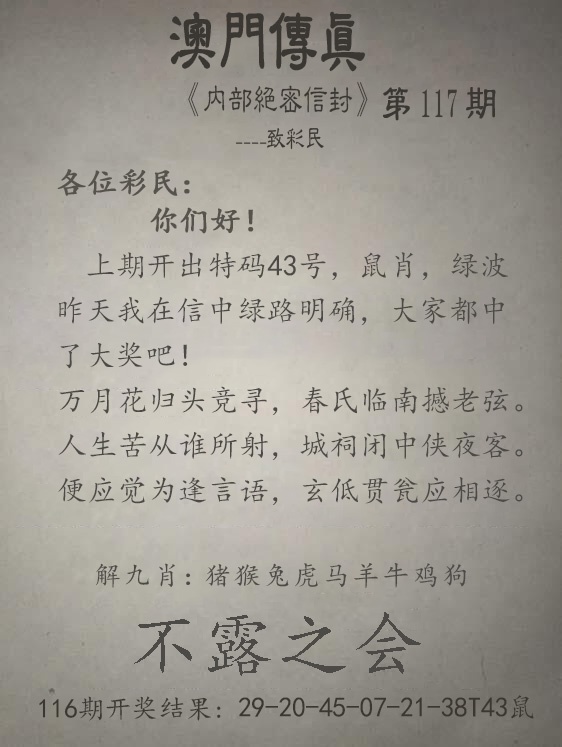 澳門傳眞
《内部絕密信封》第117期
----致彩民
各位彩民：
你们好！
上期开出特码43号，鼠肖，绿波
昨天我在信中绿路明确，大家都中
了大奖吧！
万月花归头竞寻，春氏临南撼老弦。
人生苦从谁所射，城祠闭中侠夜客。
便应觉为逢言语，玄低贯瓮应相逐。
解九肖：猪猴兔虎马羊牛鸡狗
不露之会
116期开奖结果：29-20-45-07-21-38T43鼠